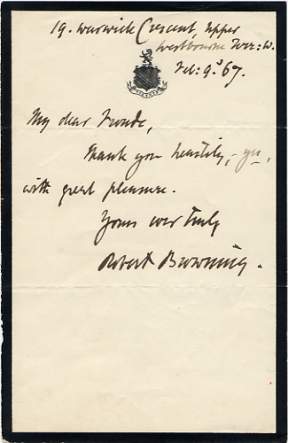 19. Warwick Crescent, Upper
Westbourne Terr: W.
Feb: 9. 67.
My dear Froude,
Thank you heartily, - yes,
with great pleasure.
Yours ever truly
Robert Browning.